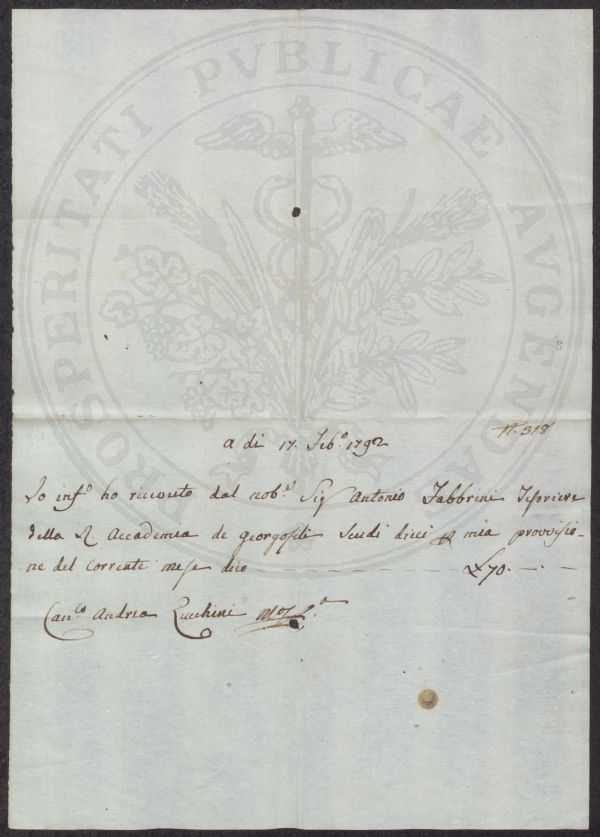 PROSPERITATI PVBLICAE AVGENDAE
N. 318
a di 17. Feb.º 1792
Io infº ho ricevuto dal nob.e Sigr Antonio Fabbrini Tesoriere
della R. Accademia de Georgofili Scudi dieci p mia provvisio-
ne del corrente mese dico £70. -. -
Can.co Andrea Zucchini